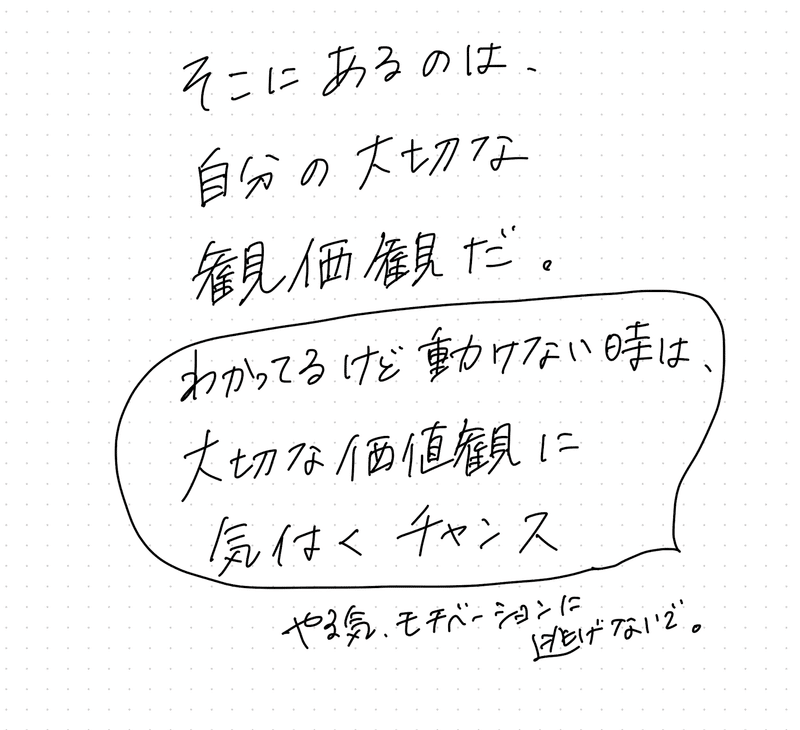 そこにあるのは、
自分の大切な
観価観だ。
わかってるけど動けない時は、
大切な価値観に
気付くチャンス
やる気、モチベーションに
逃げないで。